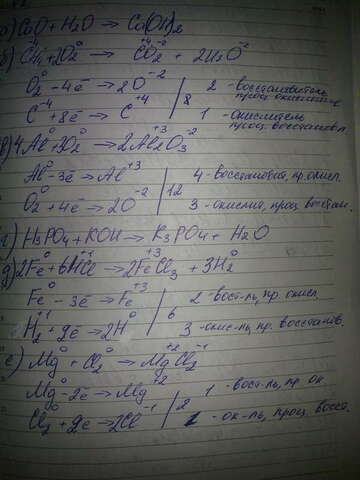 а) CaO + H₂O → Ca(OH)₂
б) C⁻⁴H₄ + 2O₂⁰ → C⁺⁴O₂⁻² + 2H₂O⁻²
O₂⁰ - 4ē → 2O⁻² | 8 | 2 - восстановитель
проц окисления
C⁻⁴ + 8ē → C⁺⁴ | 1 - окислитель
проц. восстановл.
в) 4Al⁰ + 3O₂⁰ → 2Al₂⁺³O₃⁻²
Al⁰ - 3ē → Al⁺³ | 12 | 4 - восстановил, пр. окисл.
O₂⁰ + 4ē → 2O⁻² | 3 - окислил, проц. восстан.
г) H₃PO₄ + KOH → K₃PO₄ + H₂O
д) 2Fe⁰ + 6H⁺¹Cl → 2Fe⁺³Cl₃ + 3H₂⁰
Fe⁰ - 3ē → Fe⁺³ | 6 | 2 - вост-ль, пр. окисл.
H₂⁺¹ + 2ē → 2H⁰ | 3 - окис-ль, пр. восстанов.
е) Mg⁰ + Cl₂⁰ → Mg⁺²Cl₂⁻¹
Mg⁰ - 2ē → Mg⁺² | 2 | 1 - вост-ль, пр ок.
Cl₂⁰ + 2ē → 2Cl⁻¹ | 1 - ок-ль, проц. восст.